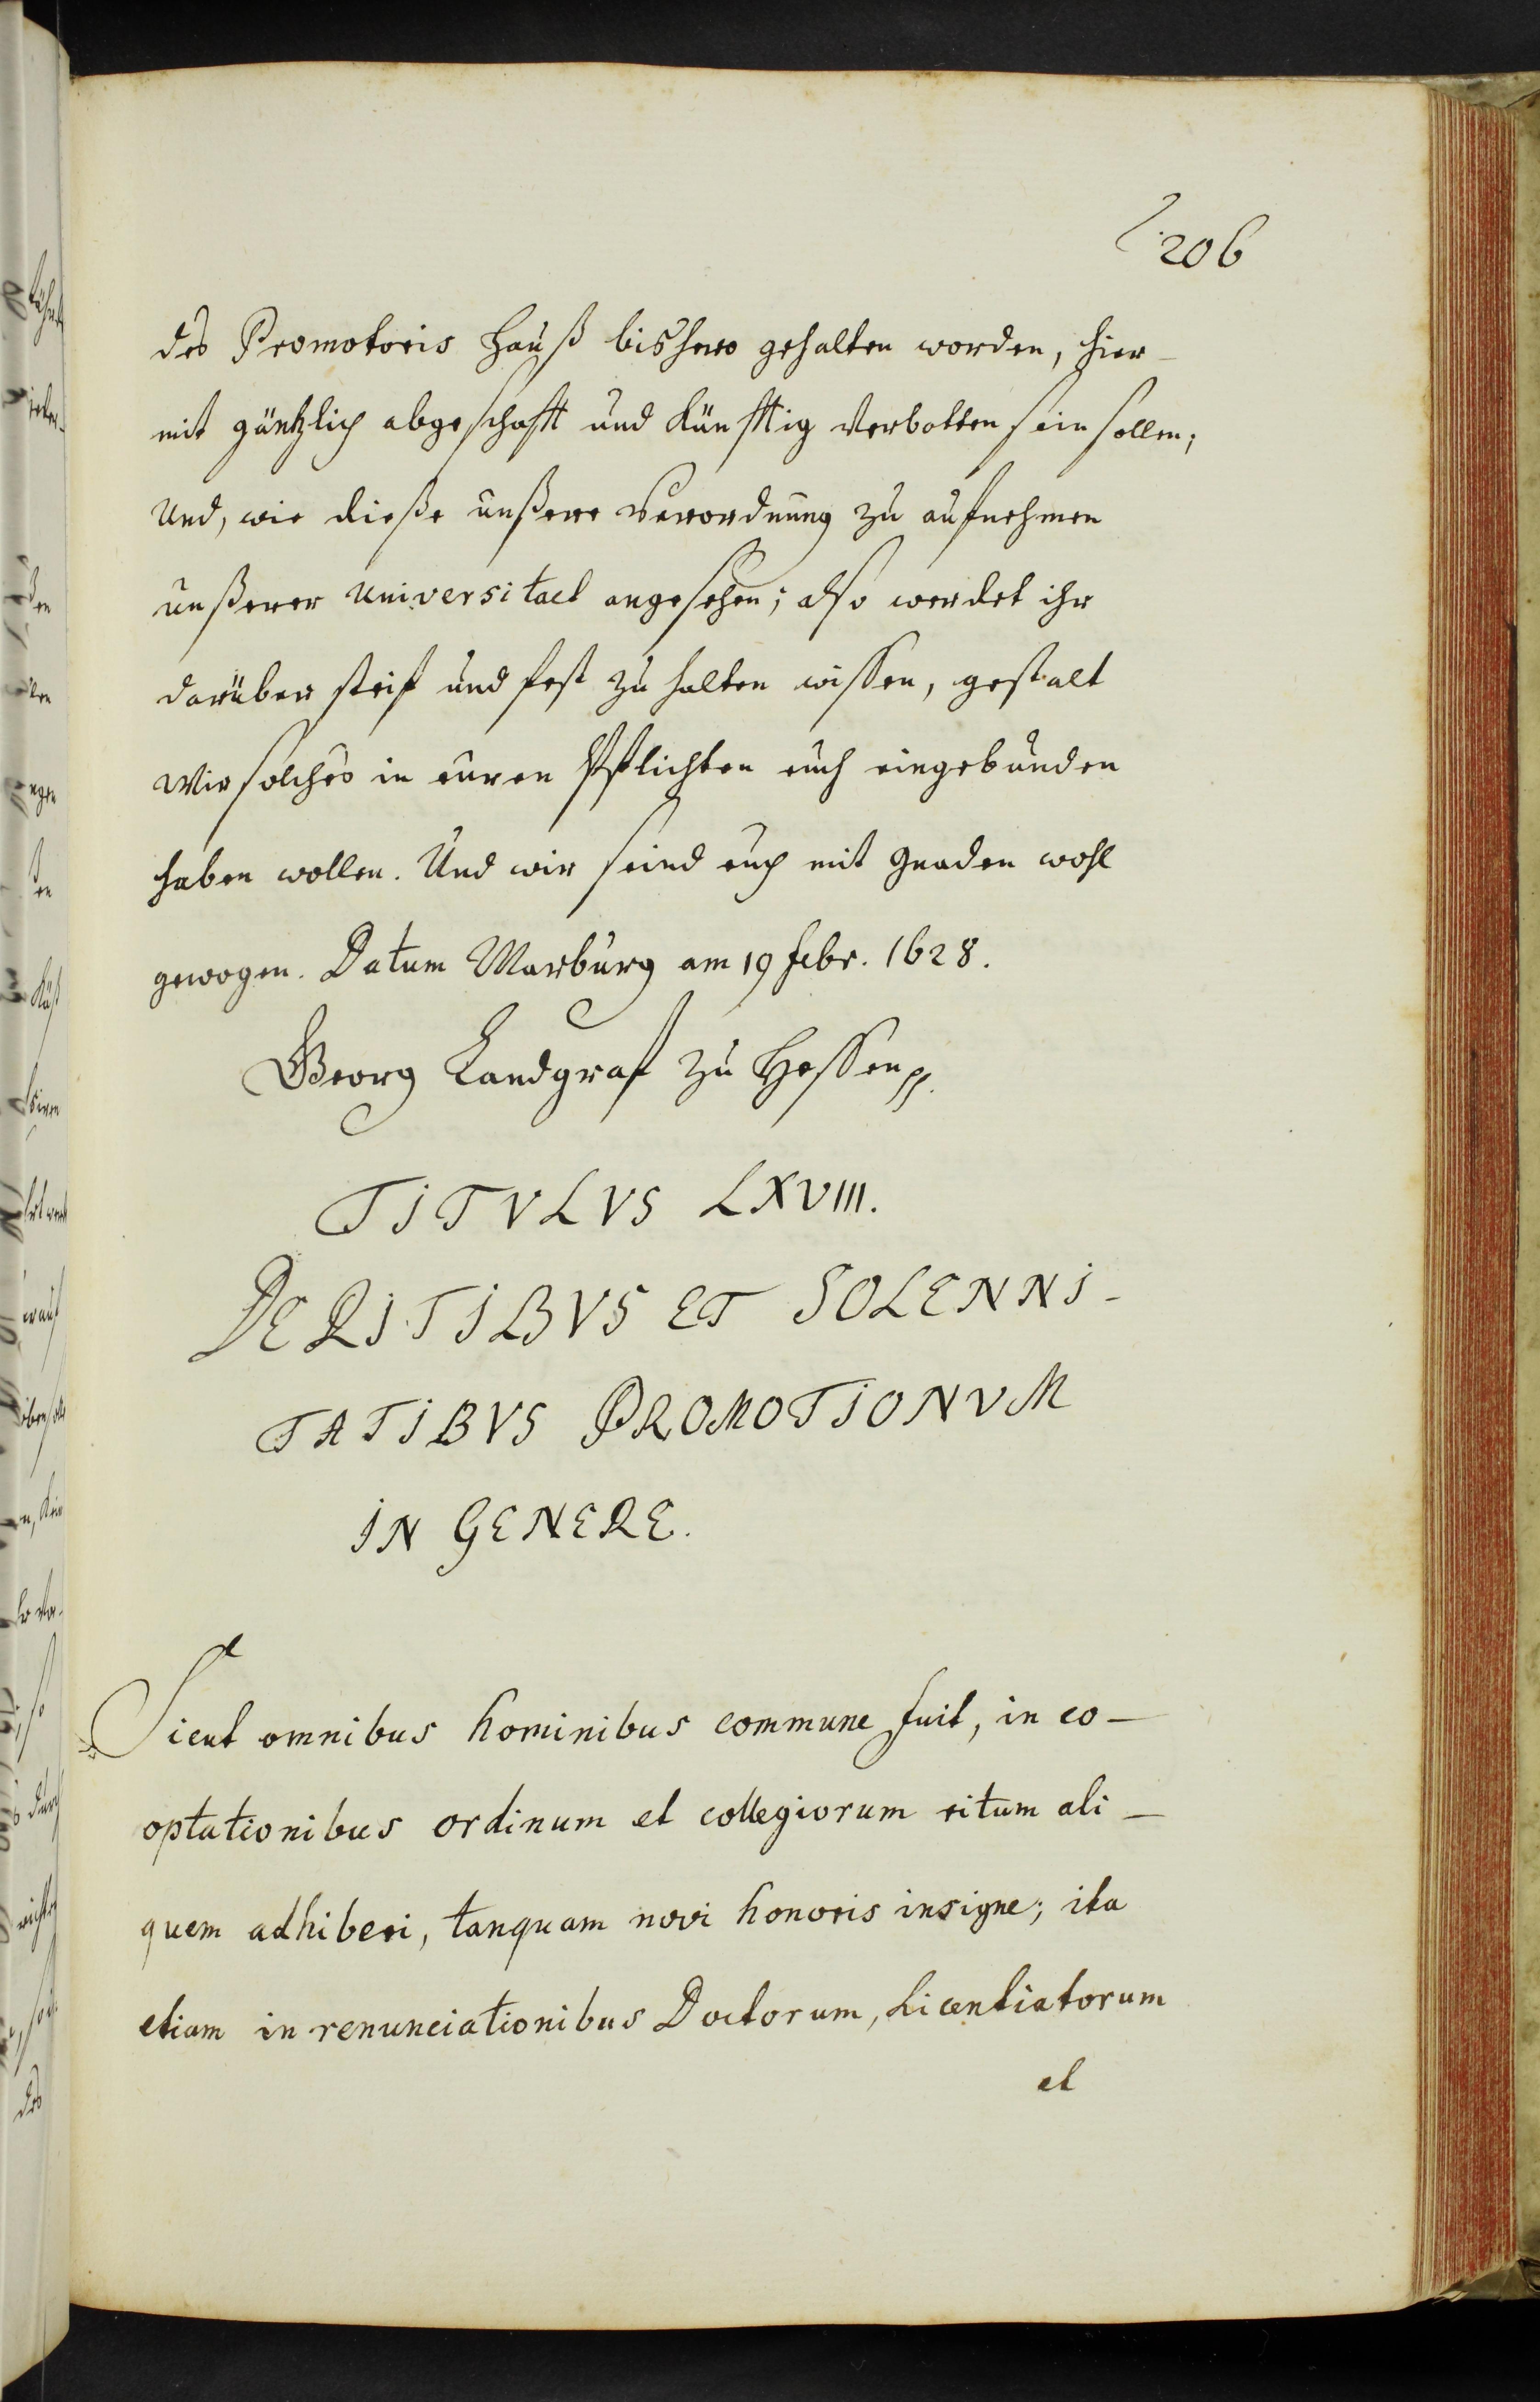 206
des Promotoris Hauß bishero gehalten worden, hier-
mit gäntzlich abgeschafft und künfftig verbotten sein sollen;
Und, wie dieße unßere Verordnung zu aufnehmen
unßerer Universitaet angesehen; also werdet ihr
darüber steif und fest zu halten wissen, gestalt
Wir solches in euren Pflichten euch eingebunden
haben wollen. Und wir seind euch mit Gnaden wohl
gewogen. Datum Marburg am 19 febr. 1628.
Georg Landgraf zu Hessen pp.
TITVLVS LXVIII.
DE RITIBVS ET SOLENNI-
TATIBVS PROMOTIONVM
IN GENERE.
Sicut omnibus hominibus commune fuit, in co-
optationibus ordinum et collegiorum ritum ali-
quem adhiberi, tanquam novi honoris insigne; ita
etiam in renunciationibus Doctorum, Licentiatorum
et